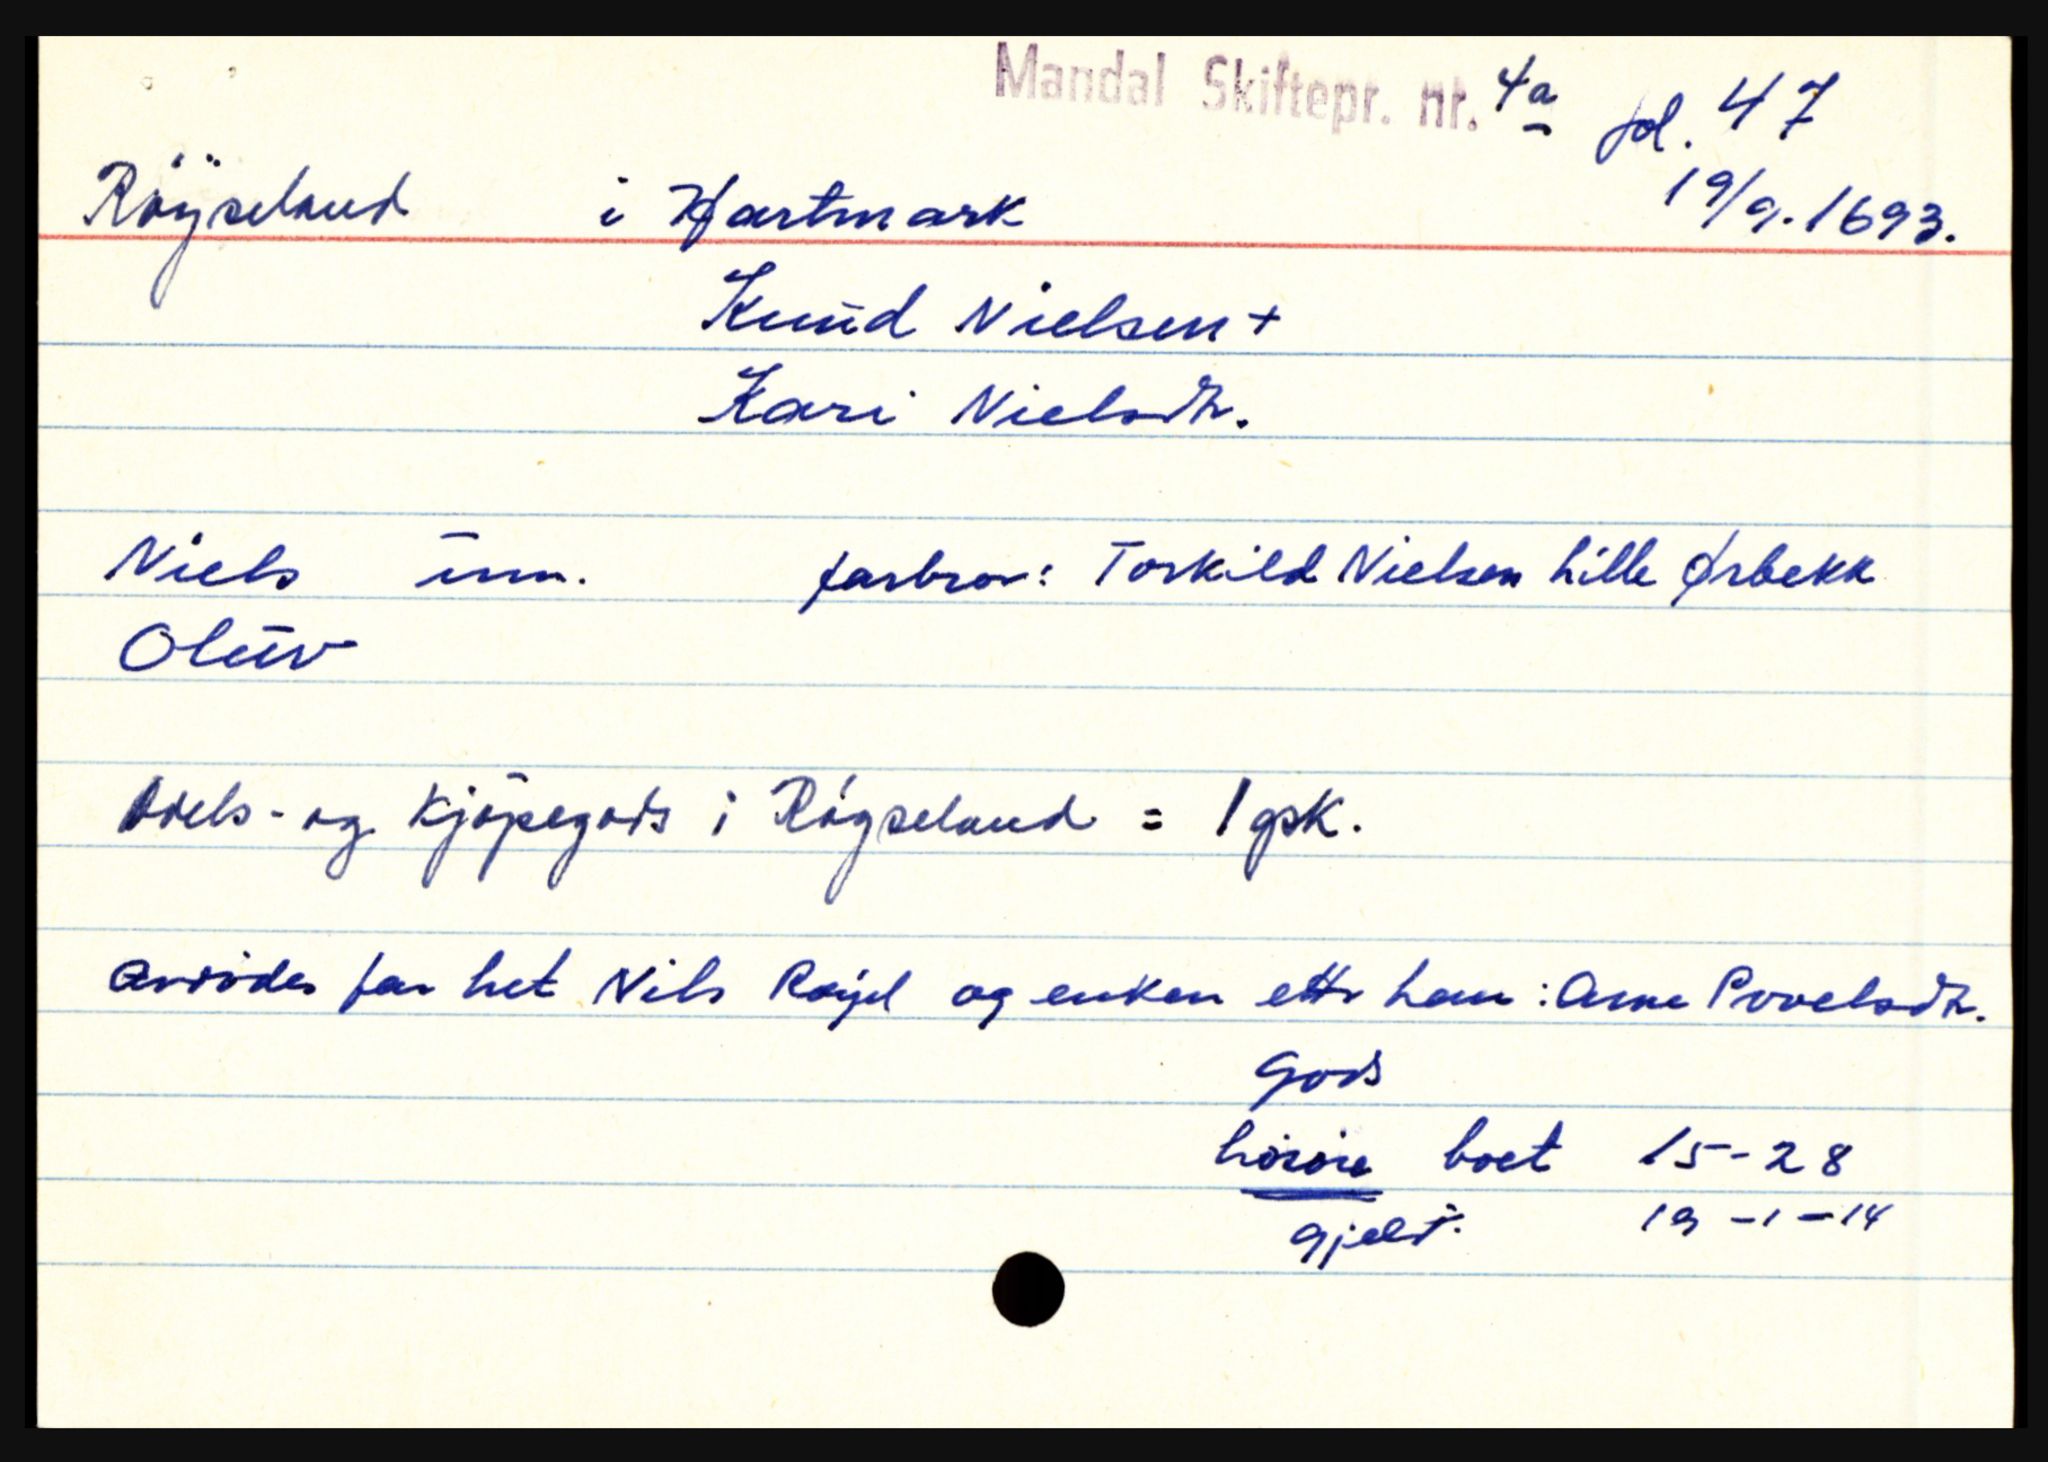 Mandal Skiftepr. nr. 4a fol. 47
Røyseland i Hartmark 19/9.1693.
Knud Nielsen +
Kari Nielsdtr.
Niels um. farbror: Torkild Nielsen Lille Ørbekk
Oluv
Odels- og kjøpegods i Røyseland = 1 gsk.
avdødes far het Nils Røysel og enken ettr ham: Anne Povelsdtr.
Gods
boet 15-28
gjeld. 19-1-14